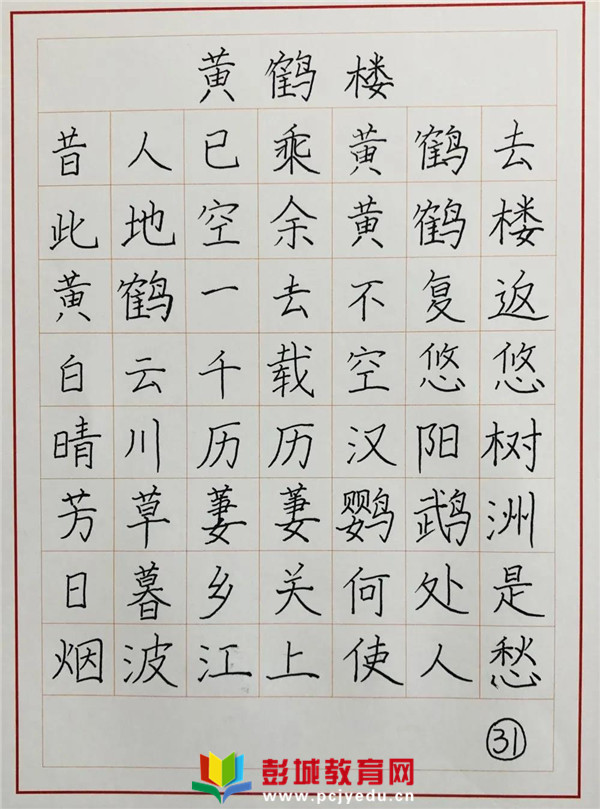 黄鹤楼
昔人已乘黄鹤去
此地空余黄鹤楼
黄鹤一去不复返
白云千载空悠悠
晴川历历汉阳树
芳草萋萋鹦鹉洲
日暮乡关何处是
烟波江上使人愁
31
彭城教育网
www.pcjyedu.cn